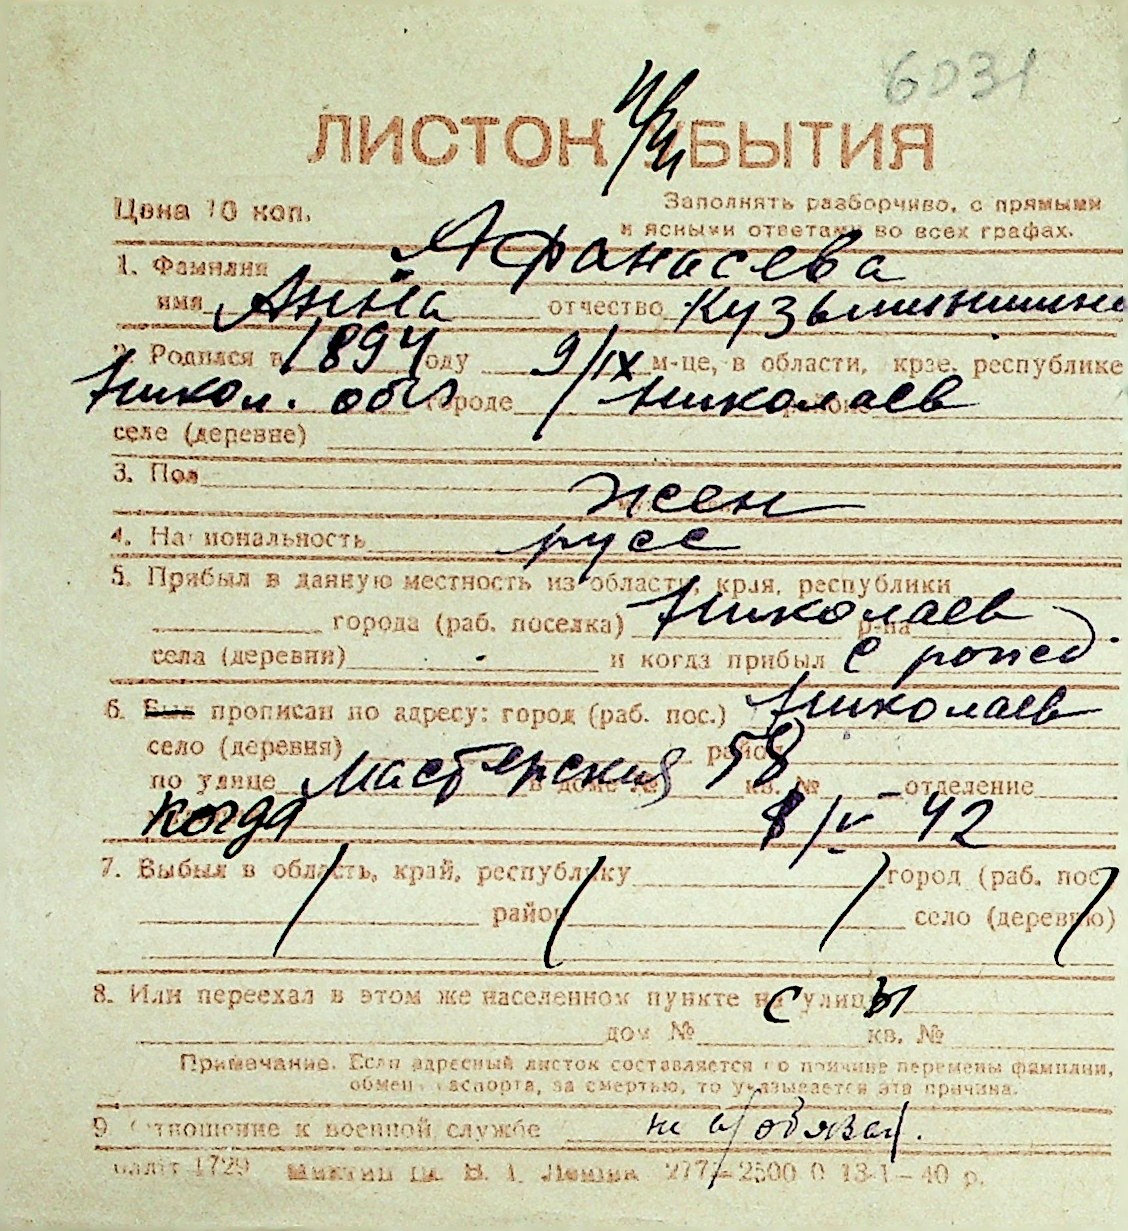 6031
ЛИСТОК УБЫТИЯ
Цена 10 коп.
Заполнять разборчиво, с прямыми
и ясными ответами во всех графах.
1. Фамилия Афанасева
имя Анна отчество Кузьминишна
2. Родился в 1894 году 9/IX м-це, в области, крае, республике
Никол. обл городе Николаев
селе (деревне)
3. Пол жен
4. Национальность русс
5. Прибыл в данную местность из области, края, республики
города (раб. поселка) Николаев р-на
села (деревни) и когда прибыл с рожд.
6. Был прописан по адресу: город (раб. пос.) Николаев
село (деревня) район
по улице Мастерская 58 в доме № кв. № отделение
когда 42
7. Выбыл в область, край, республику город (раб. пос.)
район село (деревню)
8. Или переехал в этом же населенном пункте на улицу
дом № кв. №
Примечание. Если адресный листок составляется по причине перемены фамилии,
обмена паспорта, за смертью, то указывается эта причина.
9. Отношение к военной службе не обязан.
1729 2500 0 13-1-40 р.